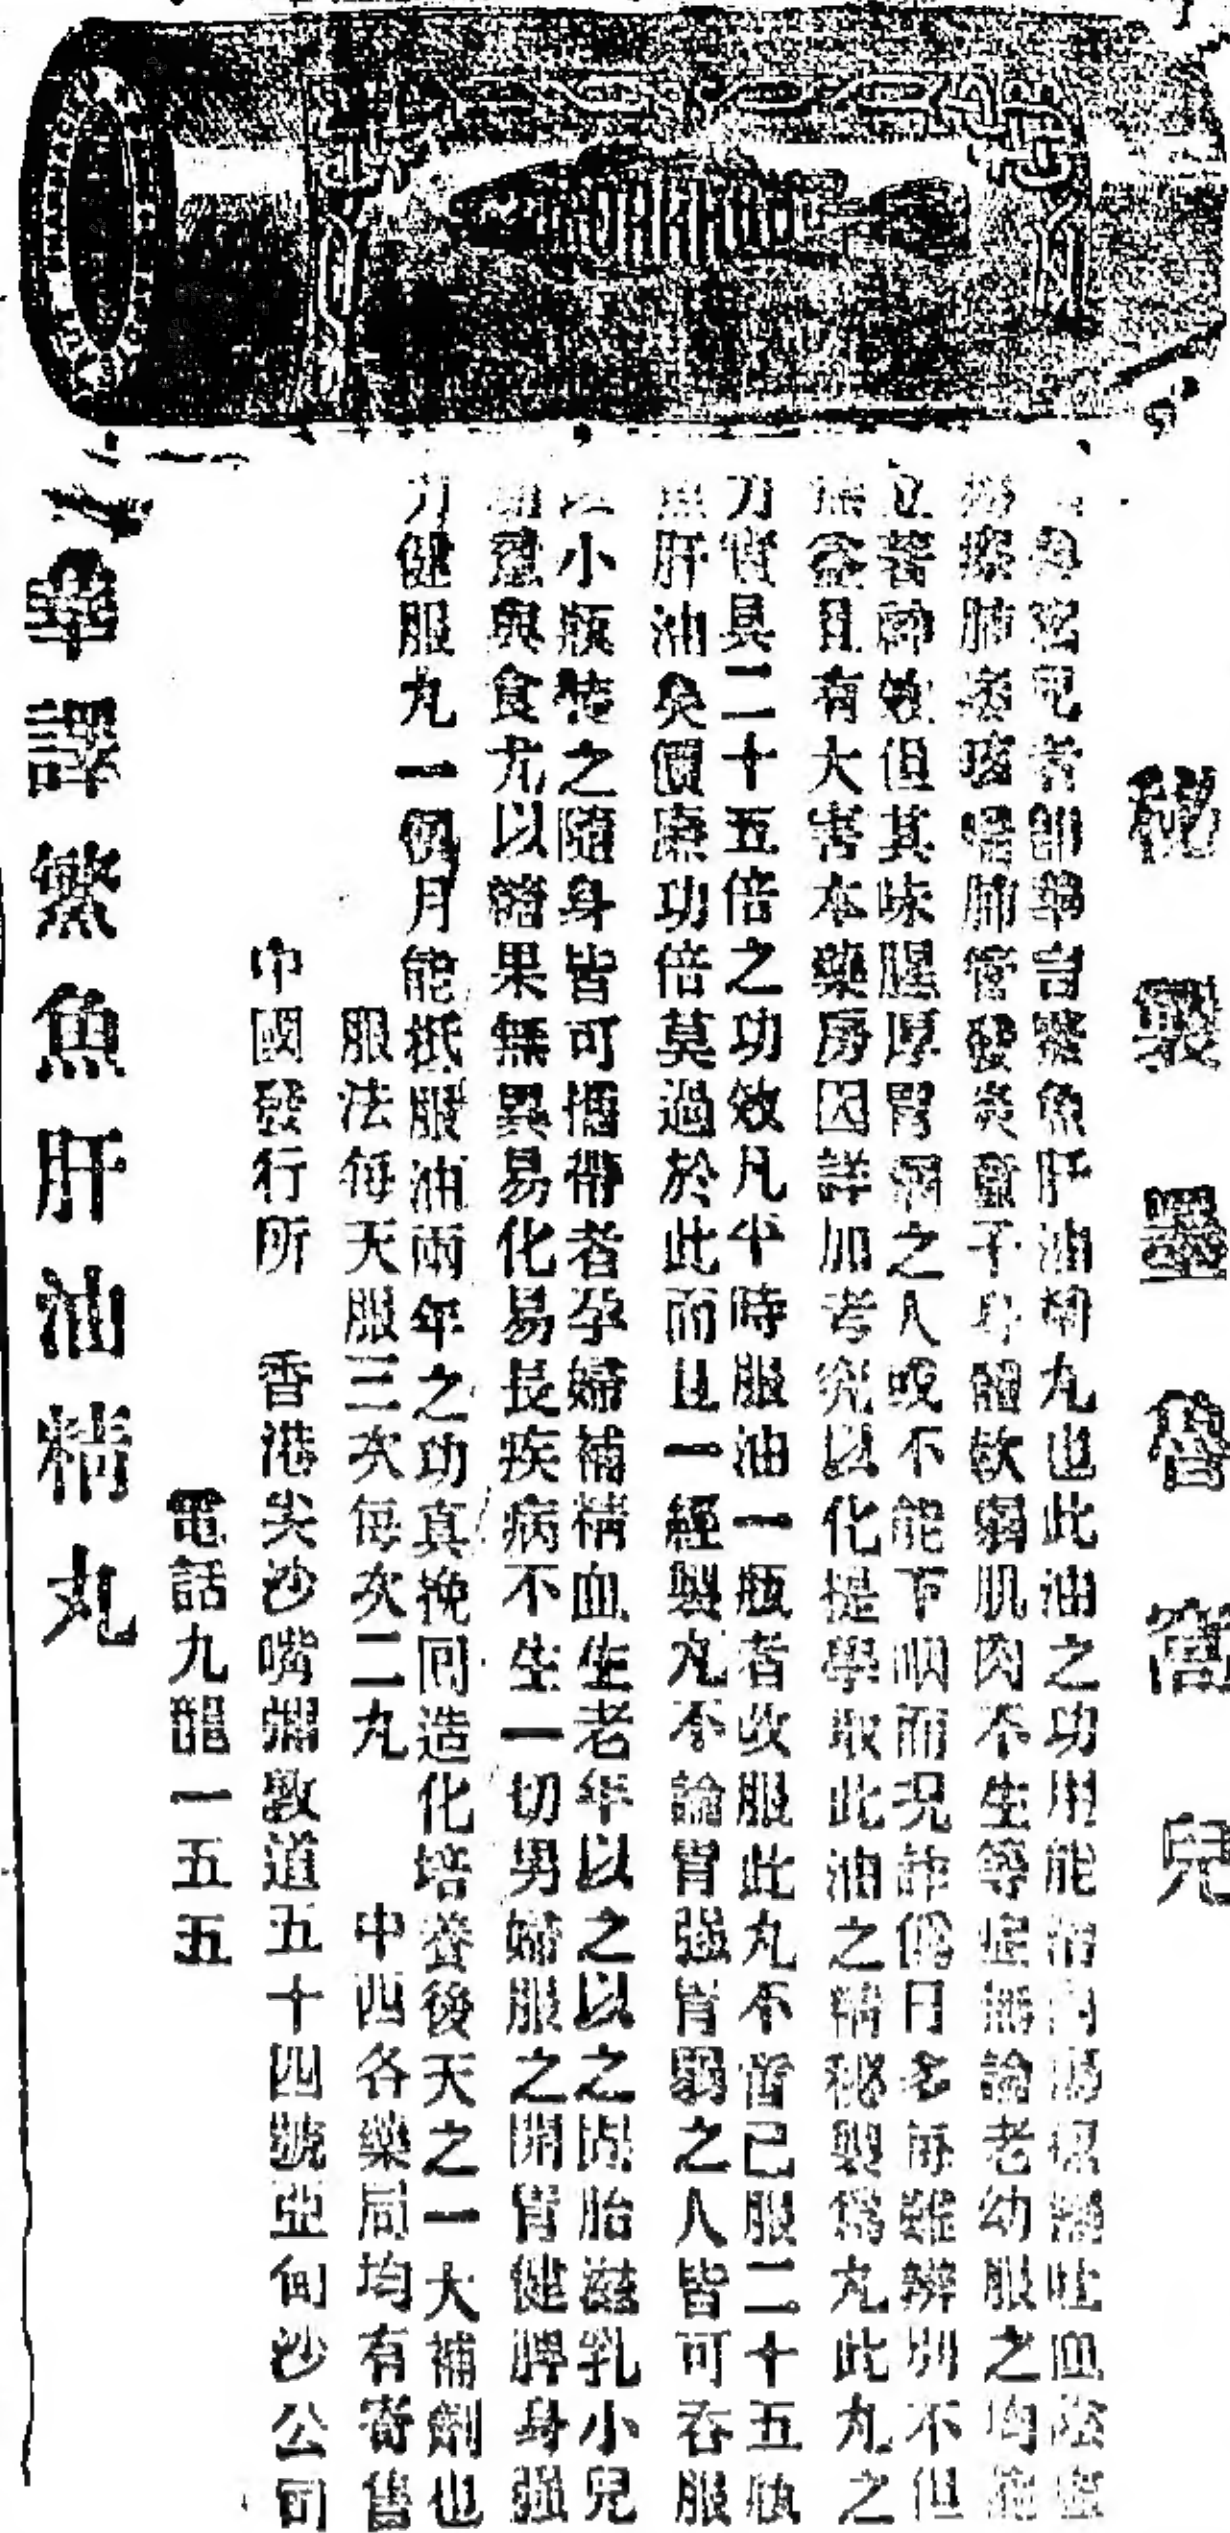 秘製墨魯窩兒
魯窩兒者即華言鱉魚肝油精丸也此油之功用能治內傷癆瘵吐血陰虛
癆瘵肺痿咳嗆肺管發炎童子身體軟弱肌肉不生等症無論老幼服之均能
立著神效但其味腥厚胃弱之人或不能下咽而况詐僞日多每難辨別不但
無益且有大害本藥房因詳加考究以化提學取此油之精秘製爲丸此丸之
力實具二十五倍之功效凡平時服油一瓶者改服此丸不啻己服二十五瓶
魚肝油矣價廉功倍莫過於此而且一經製丸不論胃强胃弱之人皆可吞服
以小瓶裝之隨身皆可攜帶者孕婦補精血生老年以之以之固胎滋乳小兒
與食尤以糖果無異易化易長疾病不生一切男婦服之開胃健脾身强
力健服丸一個月能抵服油兩年之功真挽回造化培養後天之一大補劑也
服法每天服三次每次二丸 中西各藥局均有寄售
中國發行所 香港尖沙嘴彌敦道五十四號亞甸沙公司
電話九龍一五五
華譯鱉魚肝油精丸